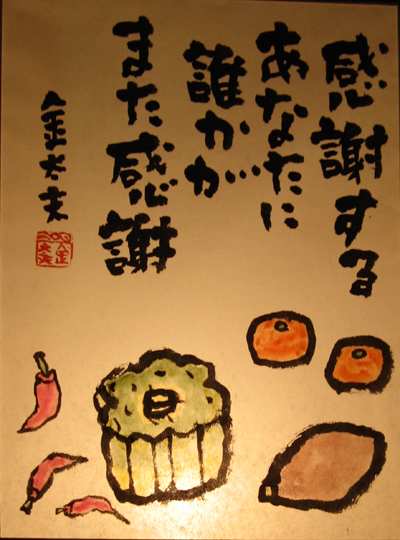 感謝する
あなたに
誰かが
また感謝
金太夫